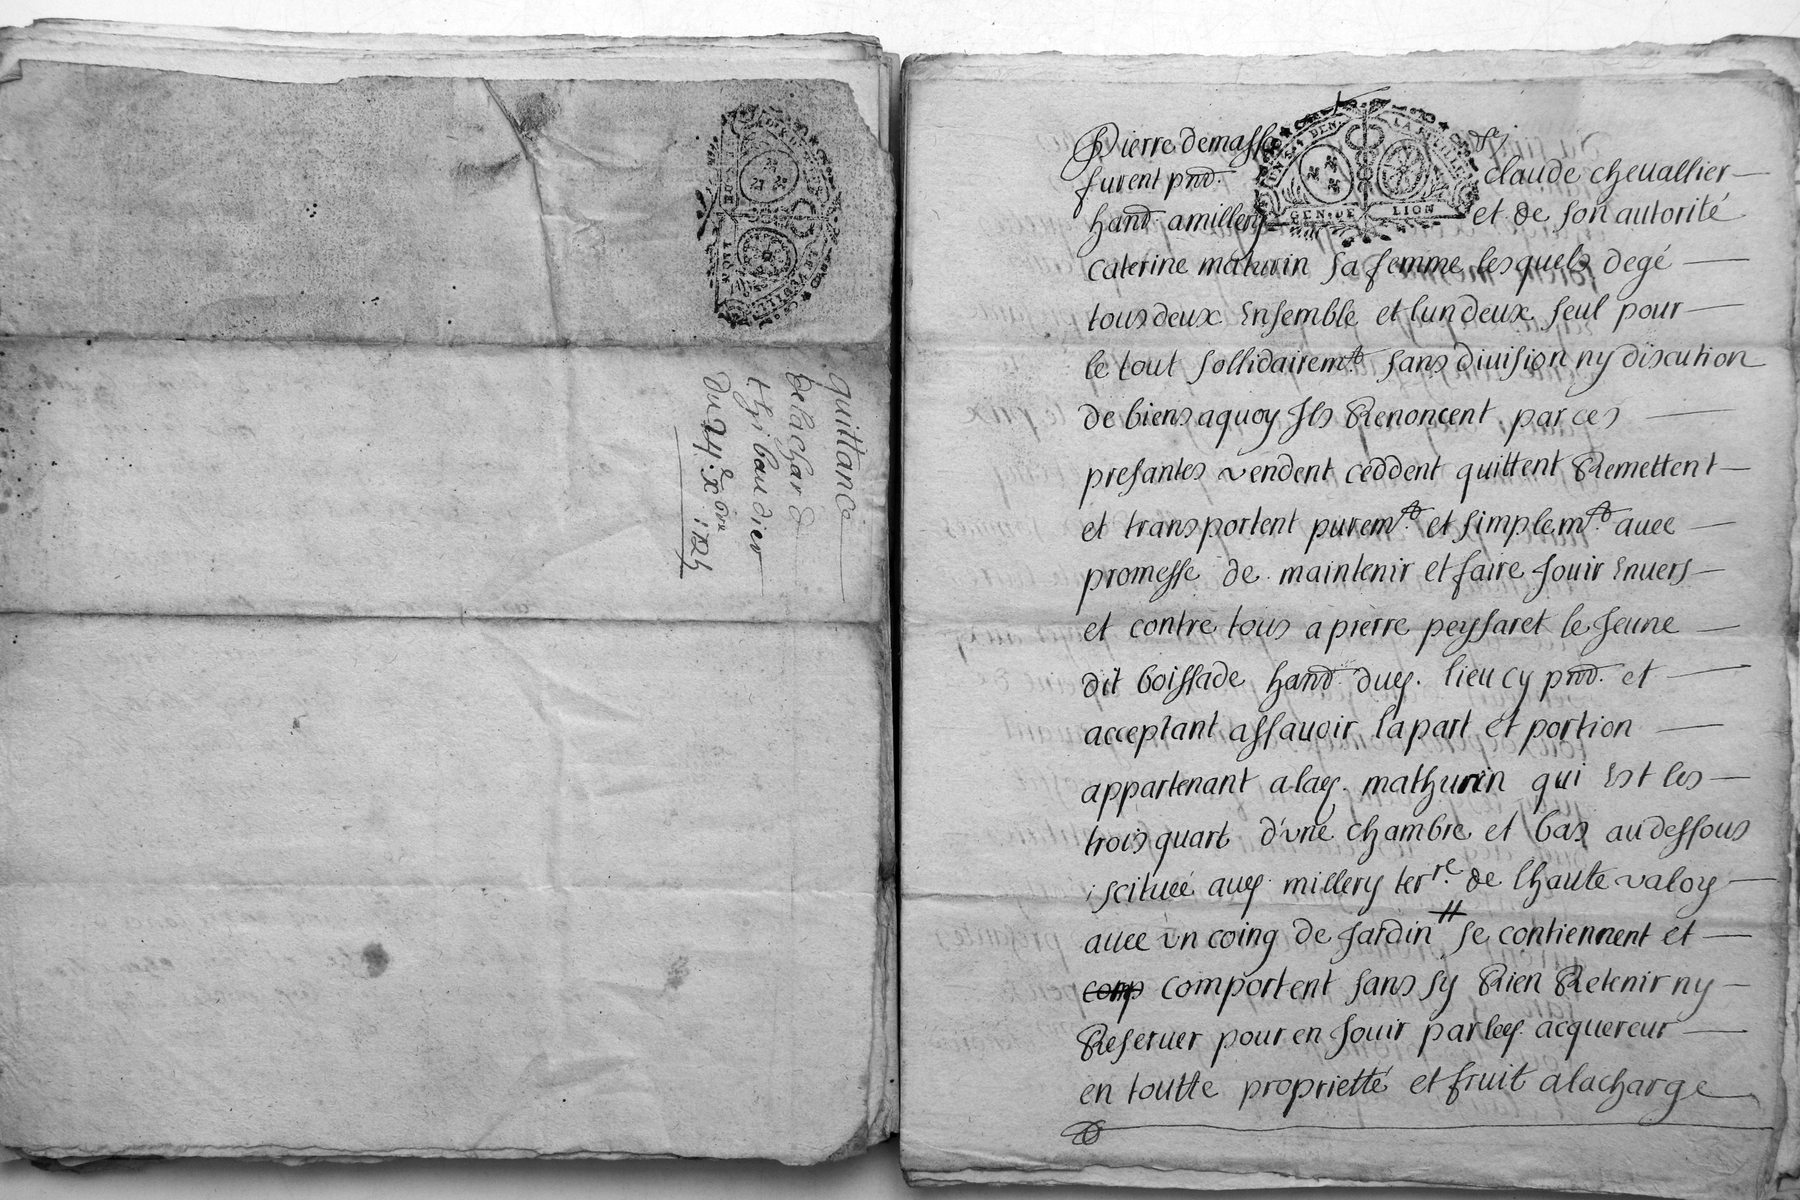 quittance
delachard
thibaudier
du 24.e xbre
Pierre demasse
furent pnd. claude cheuallier
hand. amillery et de son autorité
caterine maturin sa femme lesquels degé
tous deux Ensemble et lun deux seul pour
le tout sollidairemt. sans diuision ny discution
de biens aquoy Jls Renoncent par ces
presantes vendent ceddent quittent Remettent
et transportent puremt. et simplemt. auec
promesse de maintenir et faire Jouir Enuers
et contre tous a pierre peyssaret le Jeune
dit boissade hand. duy. lieu cy pnd. et
acceptant assauoir la part et portion
appartenant alay. mathurin qui Est les
trois quart d'vne chambre et bas audessous
scituéé auy. millery terre. de lhaute valoy
auec vn coing de Jardin # se contiennent et
comp comportent sans sy Rien Retenir ny
Reseruer pour en Jouir parley. acquereur
en toutte proprietté et fruit alacharge
GEN. DE LION